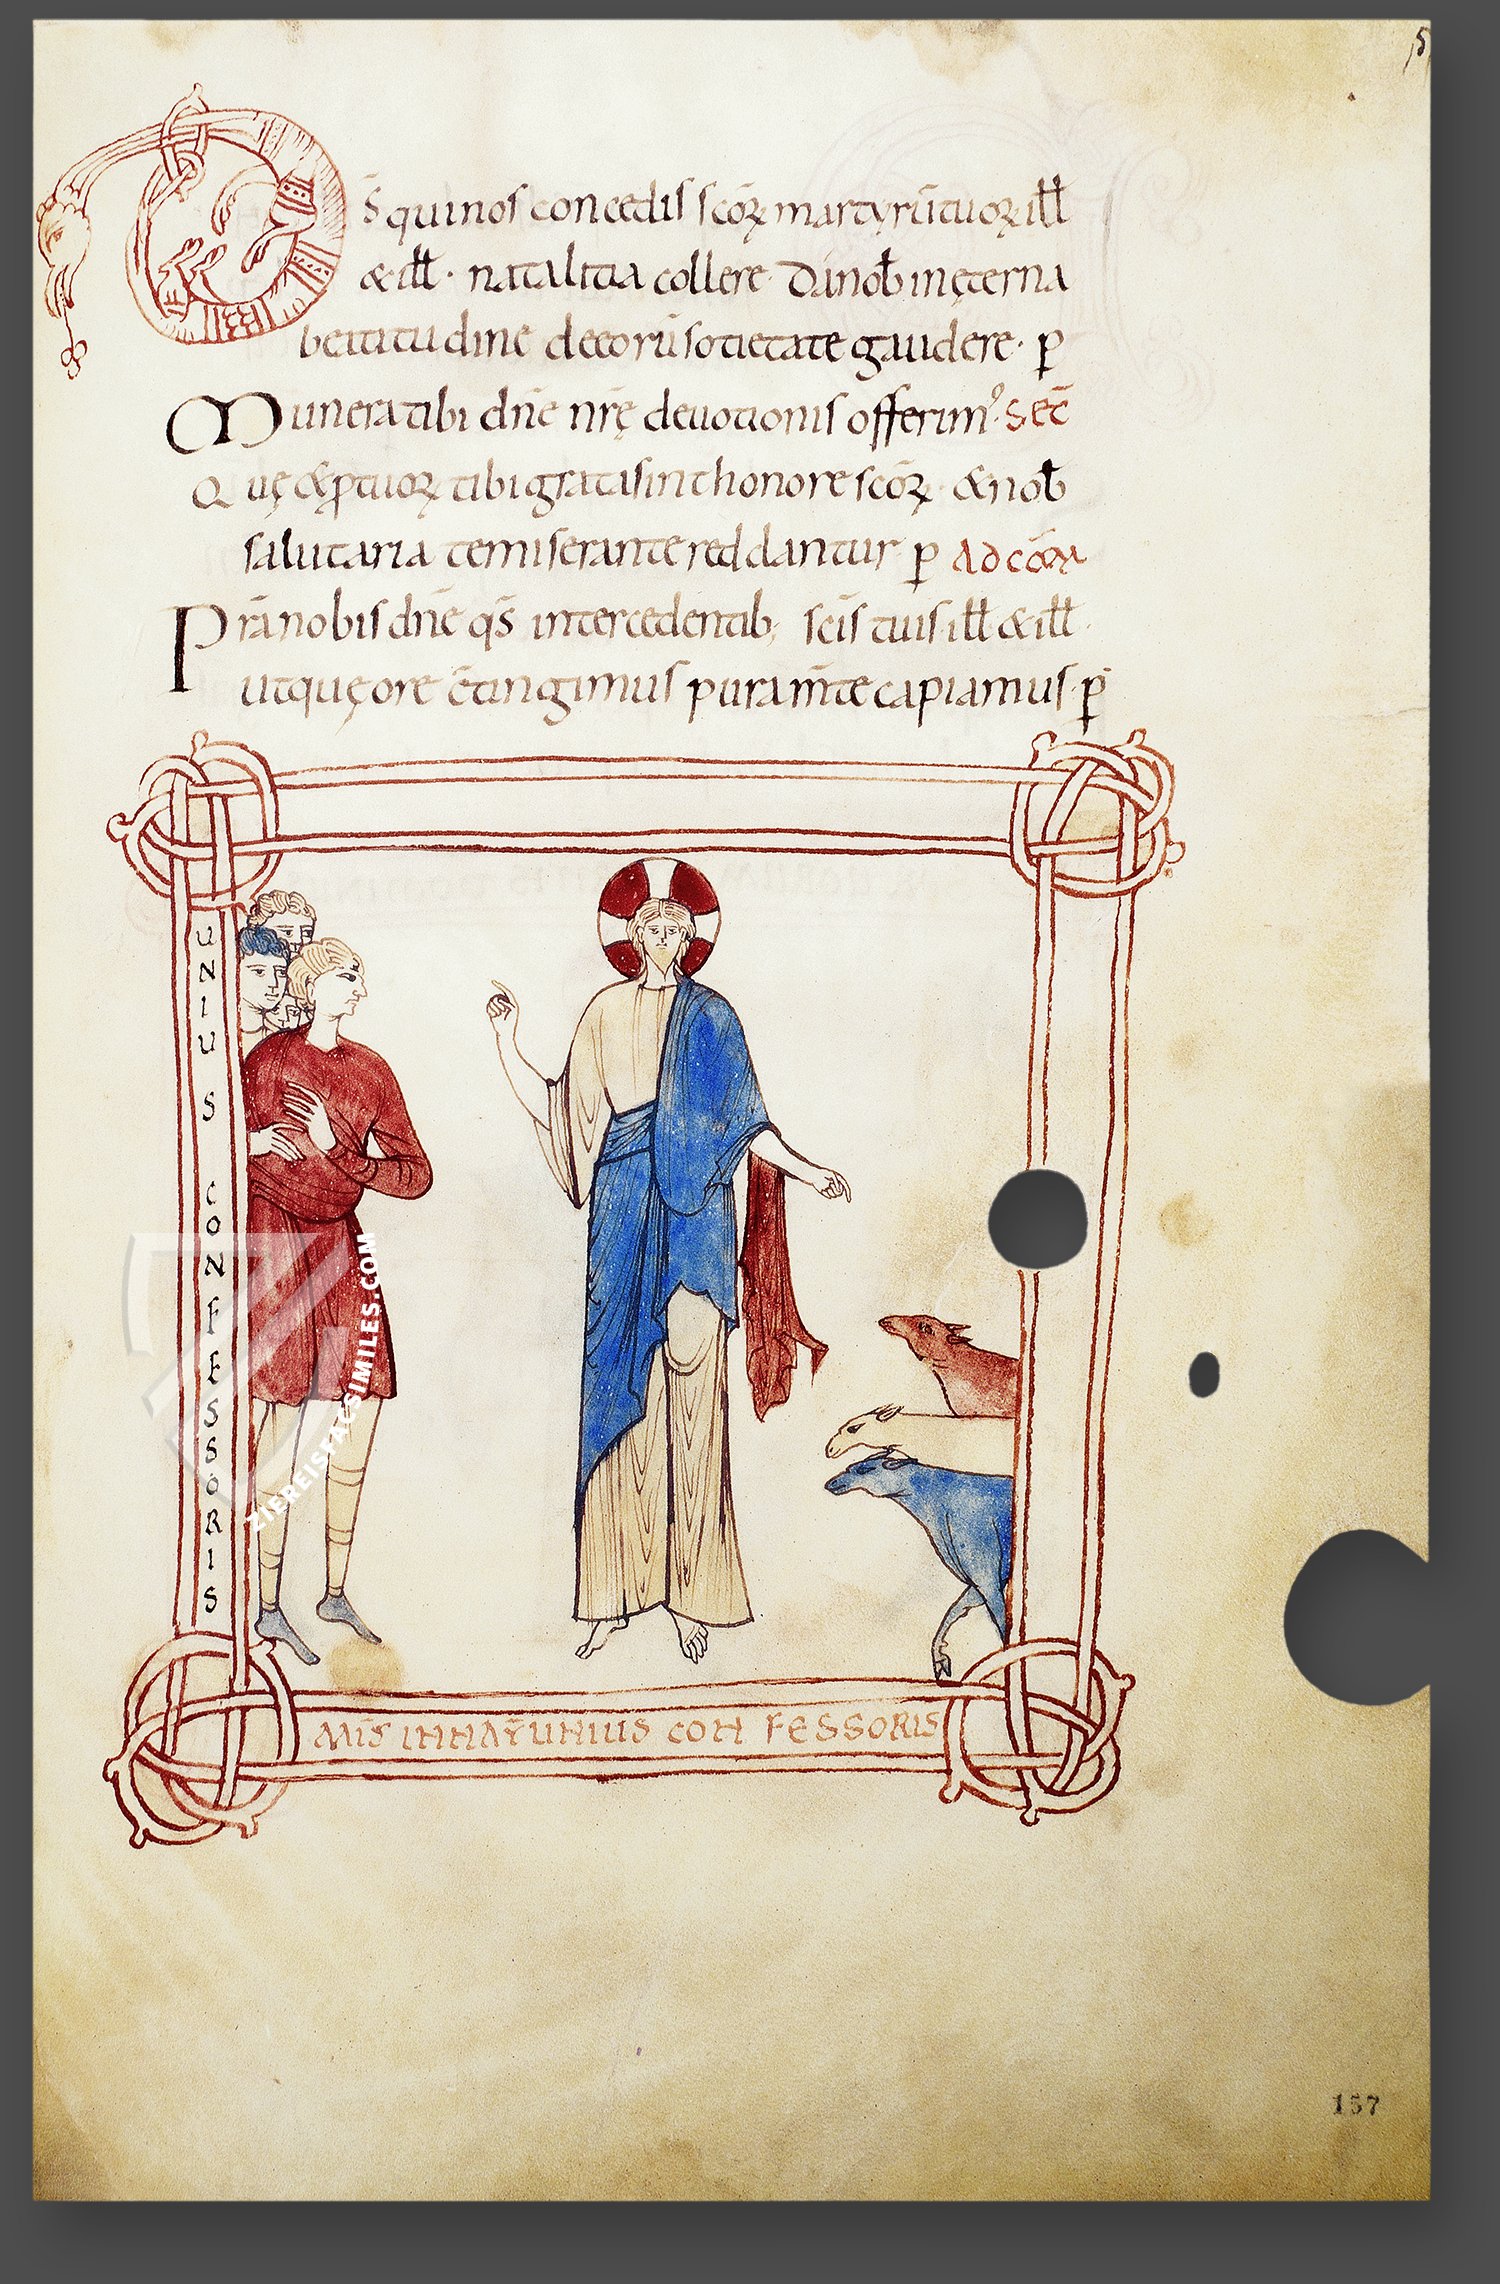 D̄S qui nos concedis scōꝝ martyrū tuoꝝ ill̄
& ill̄ · natalitia collere · Da in nob̄ in ęterna
beititudine decorū sotietate gaudere · p̄
Munera tibi dn̄e nr̄ę deuotionis offerim᾿ · SEC̄
Quę & p tuoꝝ tibi grata sint honore scōꝝ · & nob̄
salutaria te miserante reddantur · p̄ AD CŌM
Prā nobis dn̄e qs̄ intercedentib; sc̄is tuis ill̄ & ill̄ ·
ut quę ore c̄tingimus pura m̄te capiamus · p̄
UNIUS CONFESSORIS
MIS̄ IN NAT̄ UNIUS CONFESSORIS
ZIEREISFACSIMILES.COM
157